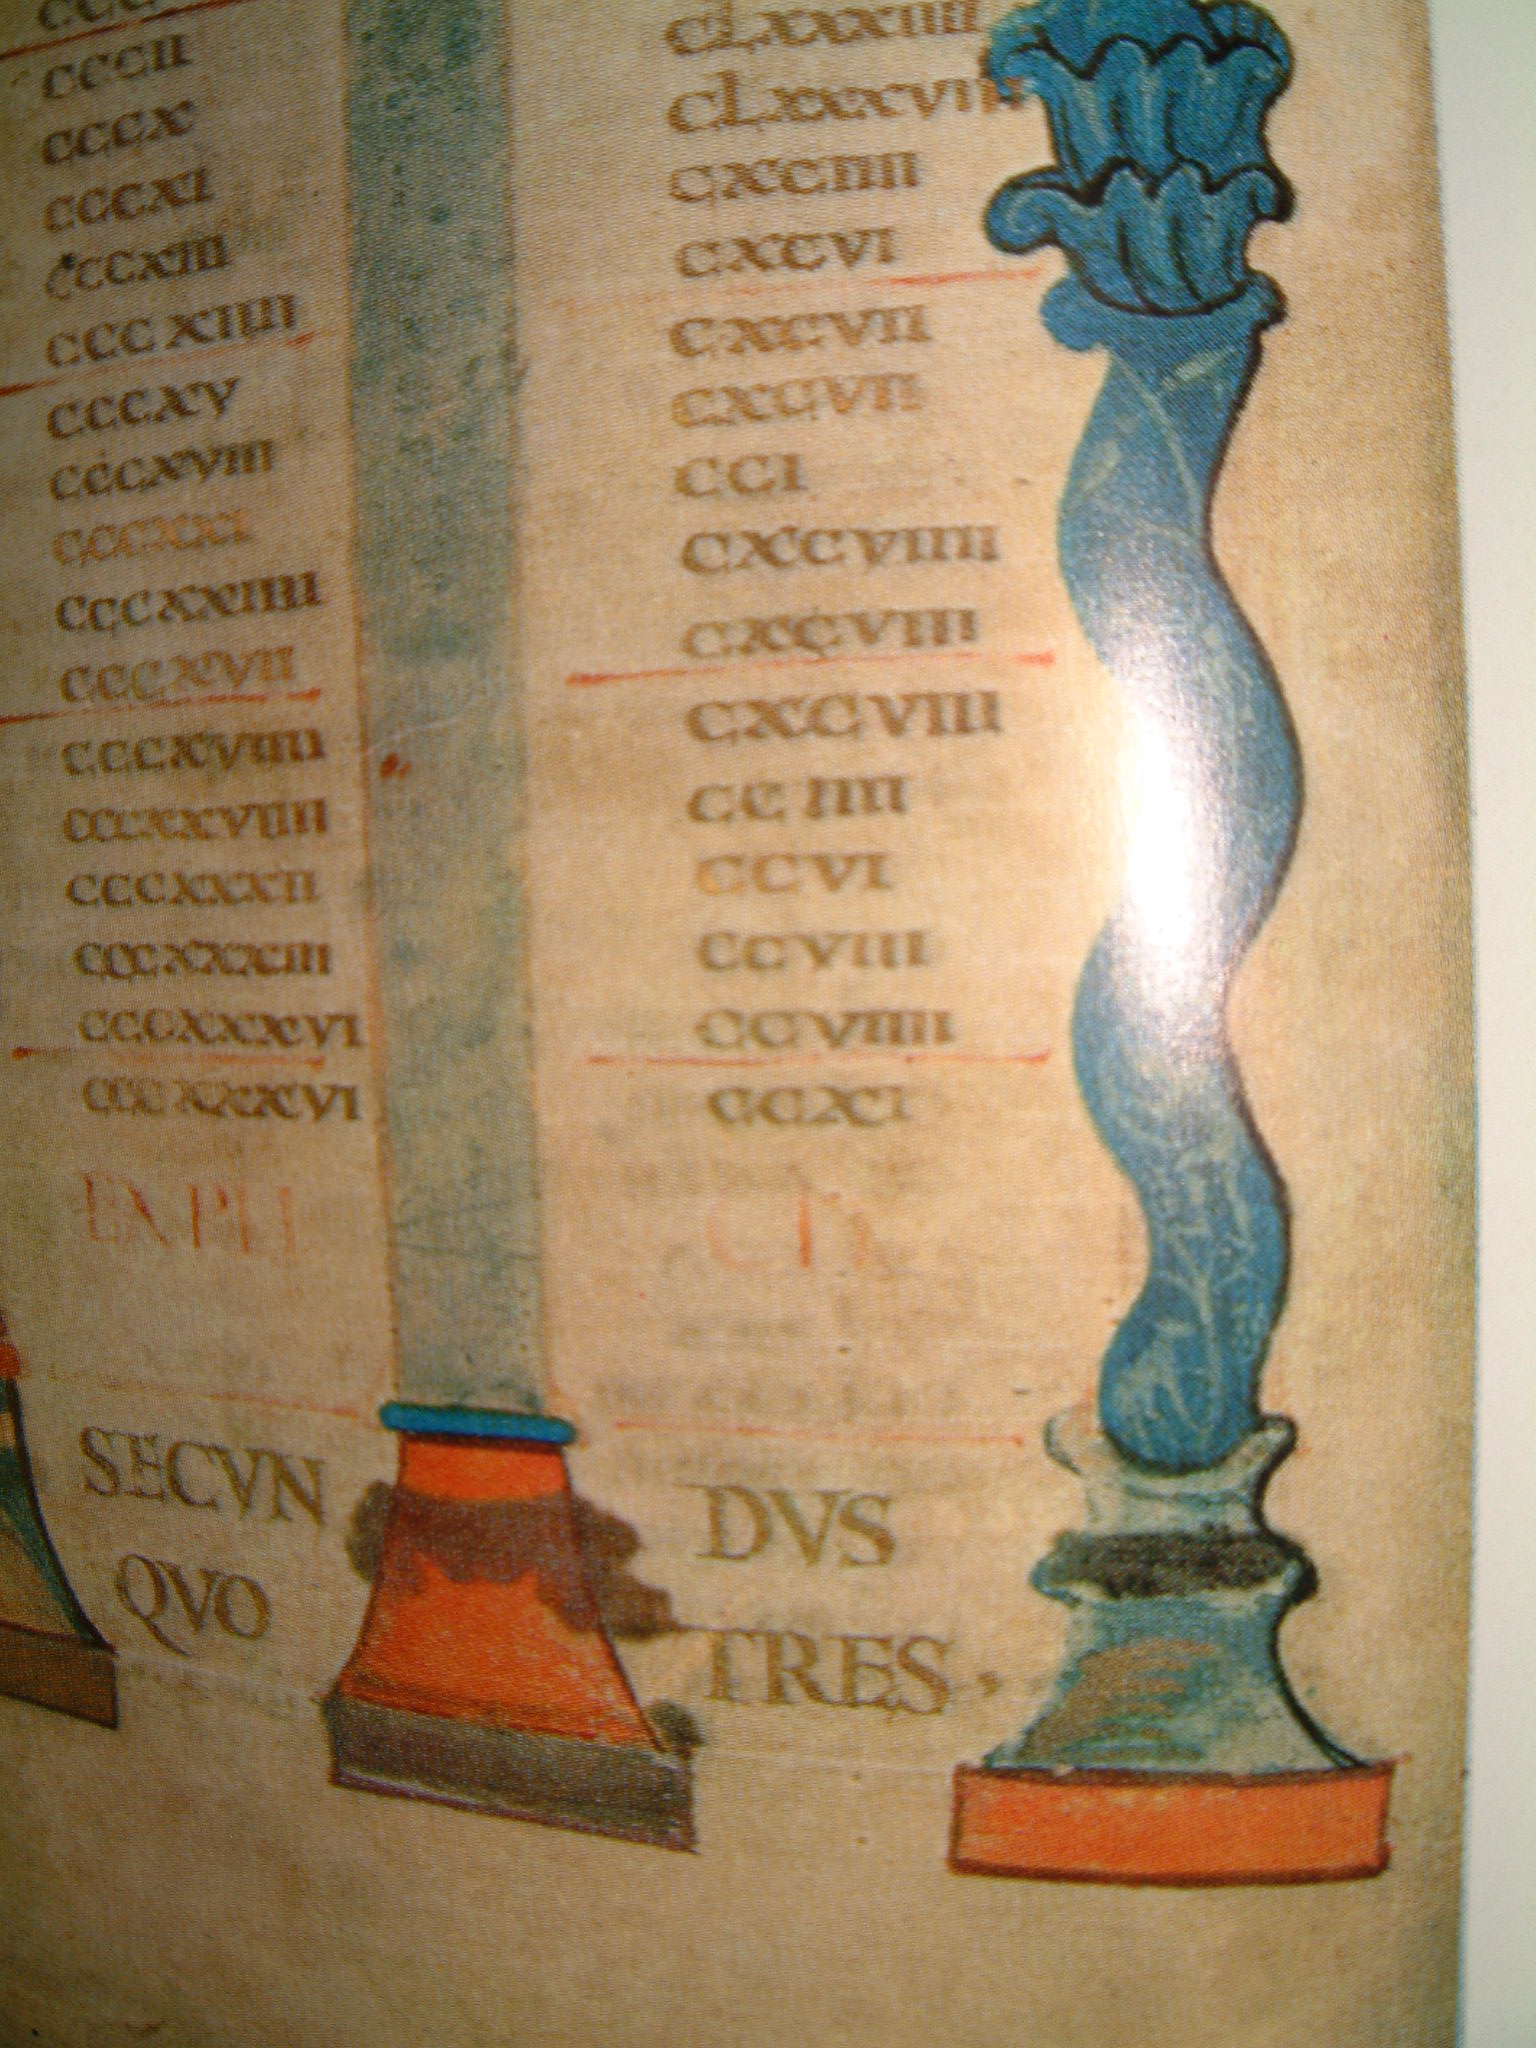 CCCII
CCCX
CCCXI
CCCXIII
CCCXIIII
CCCXV
CCCXVIII
CCCXXI
CCCXXIIII
CCCXVII
CCCXVIIII
CCCXXVIIII
CCCXXXII
CCCXXXIII
CCCXXXVI
CCCXXXVI
EXPLI
SECVN
QVO
CLXXXIIII
CLXXXVIII
CXCIIII
CXCVI
CXCVII
CXCVII
CCI
CXCVIIII
CXCVIII
CXCVIII
CCIIII
CCVI
CCVIII
CCVIIII
CCXI
CIT
DVS
TRES